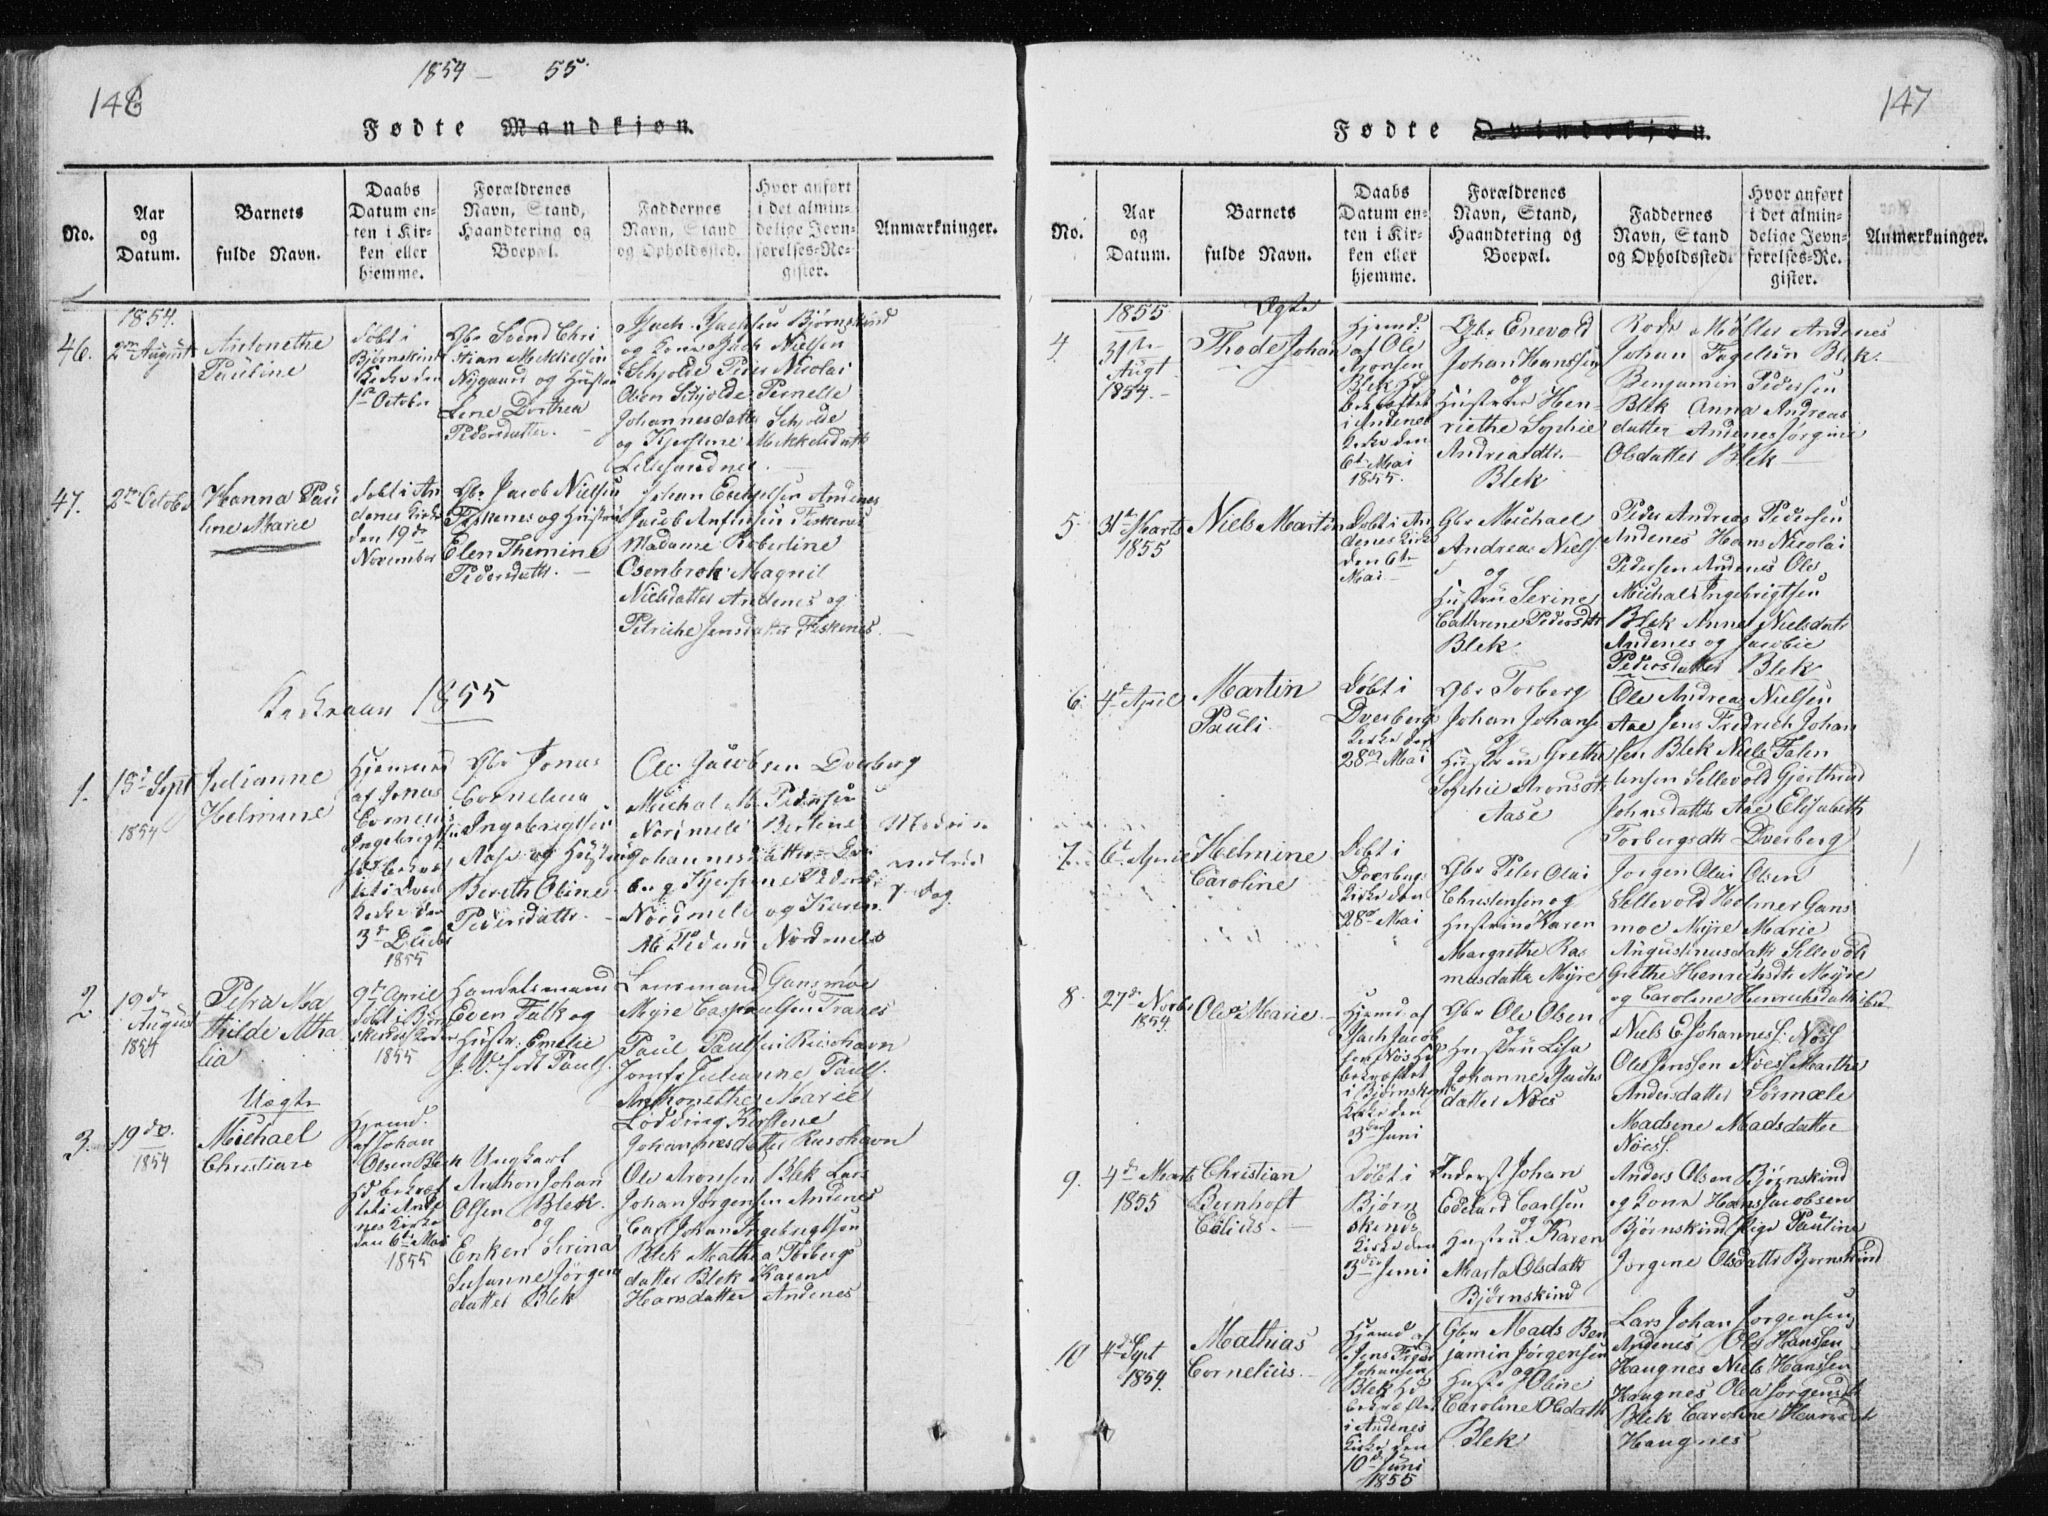 146
1854 — 55.
Fødte Mandkjøn.
No.
Aar og Datum.
Barnets fulde Navn.
Daabs Datum enten i Kirken eller hjemme.
Forældrenes Navn, Stand, Haandtering og Boepæl.
Faddernes Navn, Stand og Opholdssted.
Hvor anført i det almindelige Jevnførelses-Register.
Anmærkninger.
1854.
46.
2den August
Antonethe
Pauline
Døbt i
Bjørnskind
Kirke den
1ste October
Gbr Svend Chri
stian Mikkelsen
Nygaard og Hustru
Lene Dorthea
Pedersdatter. —
Nielsen
Nicolai
Olsen Schjolde Pernelle
Johannesdatter Schjolde
og Kjerstine Mikkelsdatter
47.
2den October
Hanna Pau
line Marie
Døbt i An
denes Kirke
den 19de
November
Gbr Jacob Nielsen
Fiskenes og Hustru
Elen Themine
Pedersdatter. —
Johan Andenes
Jacob Fiskenes
Madame Robertine
Osenbrok Magnil
Nielsdatter Andenes og
Petriche Jensdatter Fiskenes.
1855
1.
13de Sept
1854
Julianne
Helmine
Hjemme
af Jonas
Cornelius
Ingebrigtsen
3de
1855
Gbr Jonas
Cornelius
Ingebrigtsen
Aase og Hustru
Bereth Oline
Pedersdatter. —
Ole Jacobsen Dverberg
Michal M Pedersen
Nordmele
Johannesdatter
Nordmele og Karen
Nordmele
2
19de
August
1854
Petra Ma
thilde Atha
lia
9de April
1855
Handelsmand
Even Falk og
Hustr. Emelie
J. V. født Pauls.
Lensmand Gansmøe
Myre Tranes
Paul Paulsen Risøhavn
Jomf. Julianne Pauls.
Anthonethe Marie
Lødding Kirstine
Johannesdatter Risøhavn
3.
19de
1854
Uægte
Michael
Christian
Hjemd.
af Johan
Olsen Blek
den 6te Mai
1855
Ungkarl
Anthon Johan
Olsen Blek.
og
Enken Serina
Susanne Jørgens
datter Blek
Ole Aronsen Blek Lars
Johan Jørgensen Andenes
Carl Johan Ingebrigtsen
Blek Mathea Torbergs
datter Blek Karen
Hansdatter Andenes
147
Fødte Qvindekjøn.
No.
Aar og Datum.
Barnets fulde Navn.
Daabs Datum enten i Kirken eller hjemme.
Forældrenes Navn, Stand, Haandtering og Boepæl.
Faddernes Navn, Stand og Opholdssted.
Hvor anført i det almindelige Jevnførelses-Register.
Anmærkninger.
1855
Ægte
4
31te
Augt
1854. —
Thode Johan
Hjemd:
af Ole
Aronsen
Blek
i Andenes
Kirke den
6te Mai
1855.
Gbr Enevold
Johan Hanssen
og
Hustrue Hen
riethe Sophie
Andreasdtr.
Blek
Møller Andenes
Johan Fagelun Blek.
Benjamin Pedersen
Blek Anna Andreas
datter Andenes Jørgine
Olsdatter Blek —
5
31te Marts
1855
Niels Martin
Døbt i An
denes Kirke
den 6te
Mai —
Gbr Michael
Andreas Niels
og
Hustru Serine
Cathrene Pedersdtr
Blek
Peder Andreas Pedersen
Andenes Hans Nicolai
Pedersen Andenes Ole
Michal Ingebrigtsen
Blek Anne Nielsdatr
Andenes og Jacobie
Pedersdatter Blek
6.
4de April
Martin
Pauli.
Døbt i
Dverberg
Kirke den
28de Mai
Gbr Torberg
Johan Johans
og
Hustrue Grethe
Sophie Aronsdtr
Aase
Ole Andreas Nielsen
Aase Jens Fredrich Johan
sen Blek Niels Falen
Jensen Sellevold Gjertrud
Johnsdatter Aase Elisabeth
Torbergsdtr Dverberg
7.
6te April
Helmine
Caroline
Døbt i
Dverberg
Kirke den
28de Mai
Gbr Peter Olai
Christensen og
Hustrue Karen
Margrethe Ras
musdatter Myre
Jørgen Olai Olsen
Sellevold Holmer Gans
moe Myre Marie
Augustinusdatr Sellevold
Grethe Henrichsdtr Myre
og Caroline Henrichsdatter ibid
8.
27de Novbr
1854.
Ole Marie —
Hjemd af
i Bjørnskind
Kirke den
3die Juni
Gbr Ole Olsen
og
Hustru Lisa
Johanne
datter Nøes
Niels E. Johannes. Nøss
Ole Jenssen Nøess Marthe
Andersdatter Sørmæle
Madsine Madsdatter
Nøess.
9.
4de Marts
1855
Christian
Bernhoft
Edlius. —
Døbt i
Bjørn
skinds
Kirke den
3die Juni
Inderst Johan
Edevard Carlsen
og
Hustru. Karen
Marta Olsdatr
Bjørnskind
Anders Olsen Bjørnskind
og Kone Hans Jacobsen
Bjørnskind Pige Pauline
Jørgine Olsdatter Bjørnskind
10
4de Sept
1854.
Mathias
Cornelius. —
Hjemd af
Jens Fredr
Johansen
Blek
i Andenes
Kirke den
10de Juni
1855
Gbr Mads Ben
jamin Jørgensen
og
Hustr Oline
Caroline Olsdatr
Blek
Lars Johan Jørgensen
Andenes Ole Hansen
Haugnes Niels Hanssen
Haugnes Olea Jørgensdtr
Blek Caroline
Haugnes